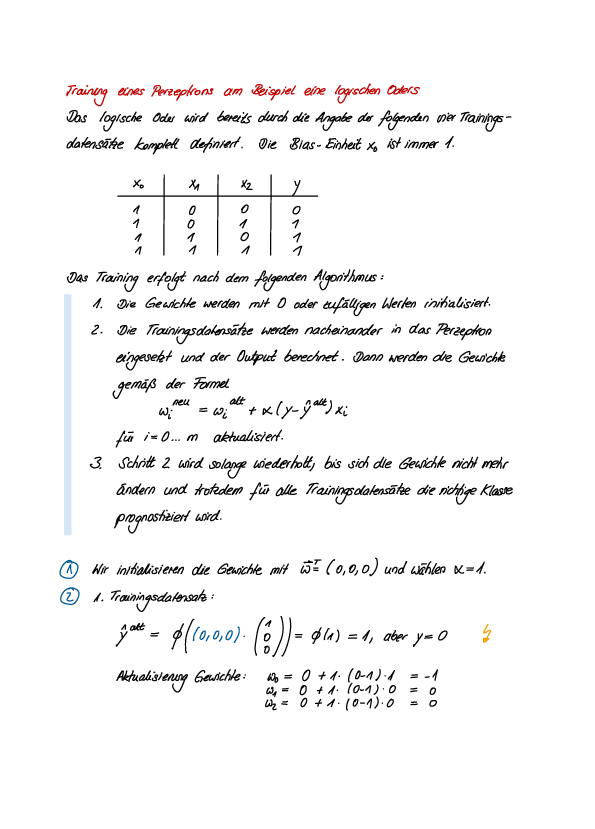 Training eines Perzeptrons am Beispiel eine logischen Oders
Das logische Oder wird bereits durch die Angabe der folgenden vier Trainings-
datensätze komplett definiert. Die Bias-Einheit x₀ ist immer 1.
x₀ x₁ x₂ y
1 0 0 0
1 0 1 1
1 1 0 1
1 1 1 1
Das Training erfolgt nach dem folgenden Algorithmus:
1. Die Gewichte werden mit 0 oder zufälligen Werten initialisiert.
2. Die Trainingsdatensätze werden nacheinander in das Perzeptron
eingesetzt und der Output berechnet. Dann werden die Gewichte
gemäß der Formel
ωᵢ^neu = ωᵢ^alt + α(y-ŷ^alt)xᵢ
für i=0...m aktualisiert.
3. Schritt 2 wird solange wiederholt, bis sich die Gewichte nicht mehr
ändern und trotzdem für alle Trainingsdatensätze die richtige Klasse
prognostiziert wird.
① Wir initialisieren die Gewichte mit ω⃗ᵀ=(0,0,0) und wählen α=1.
② 1. Trainingsdatensatz:
ŷ^alt = ϕ((0,0,0)·(1 0 0)) = ϕ(1) = 1, aber y=0
Aktualisierung Gewichte: ω₀ = 0 + 1·(0-1)·1 = -1
ω₁ = 0 + 1·(0-1)·0 = 0
ω₂ = 0 + 1·(0-1)·0 = 0